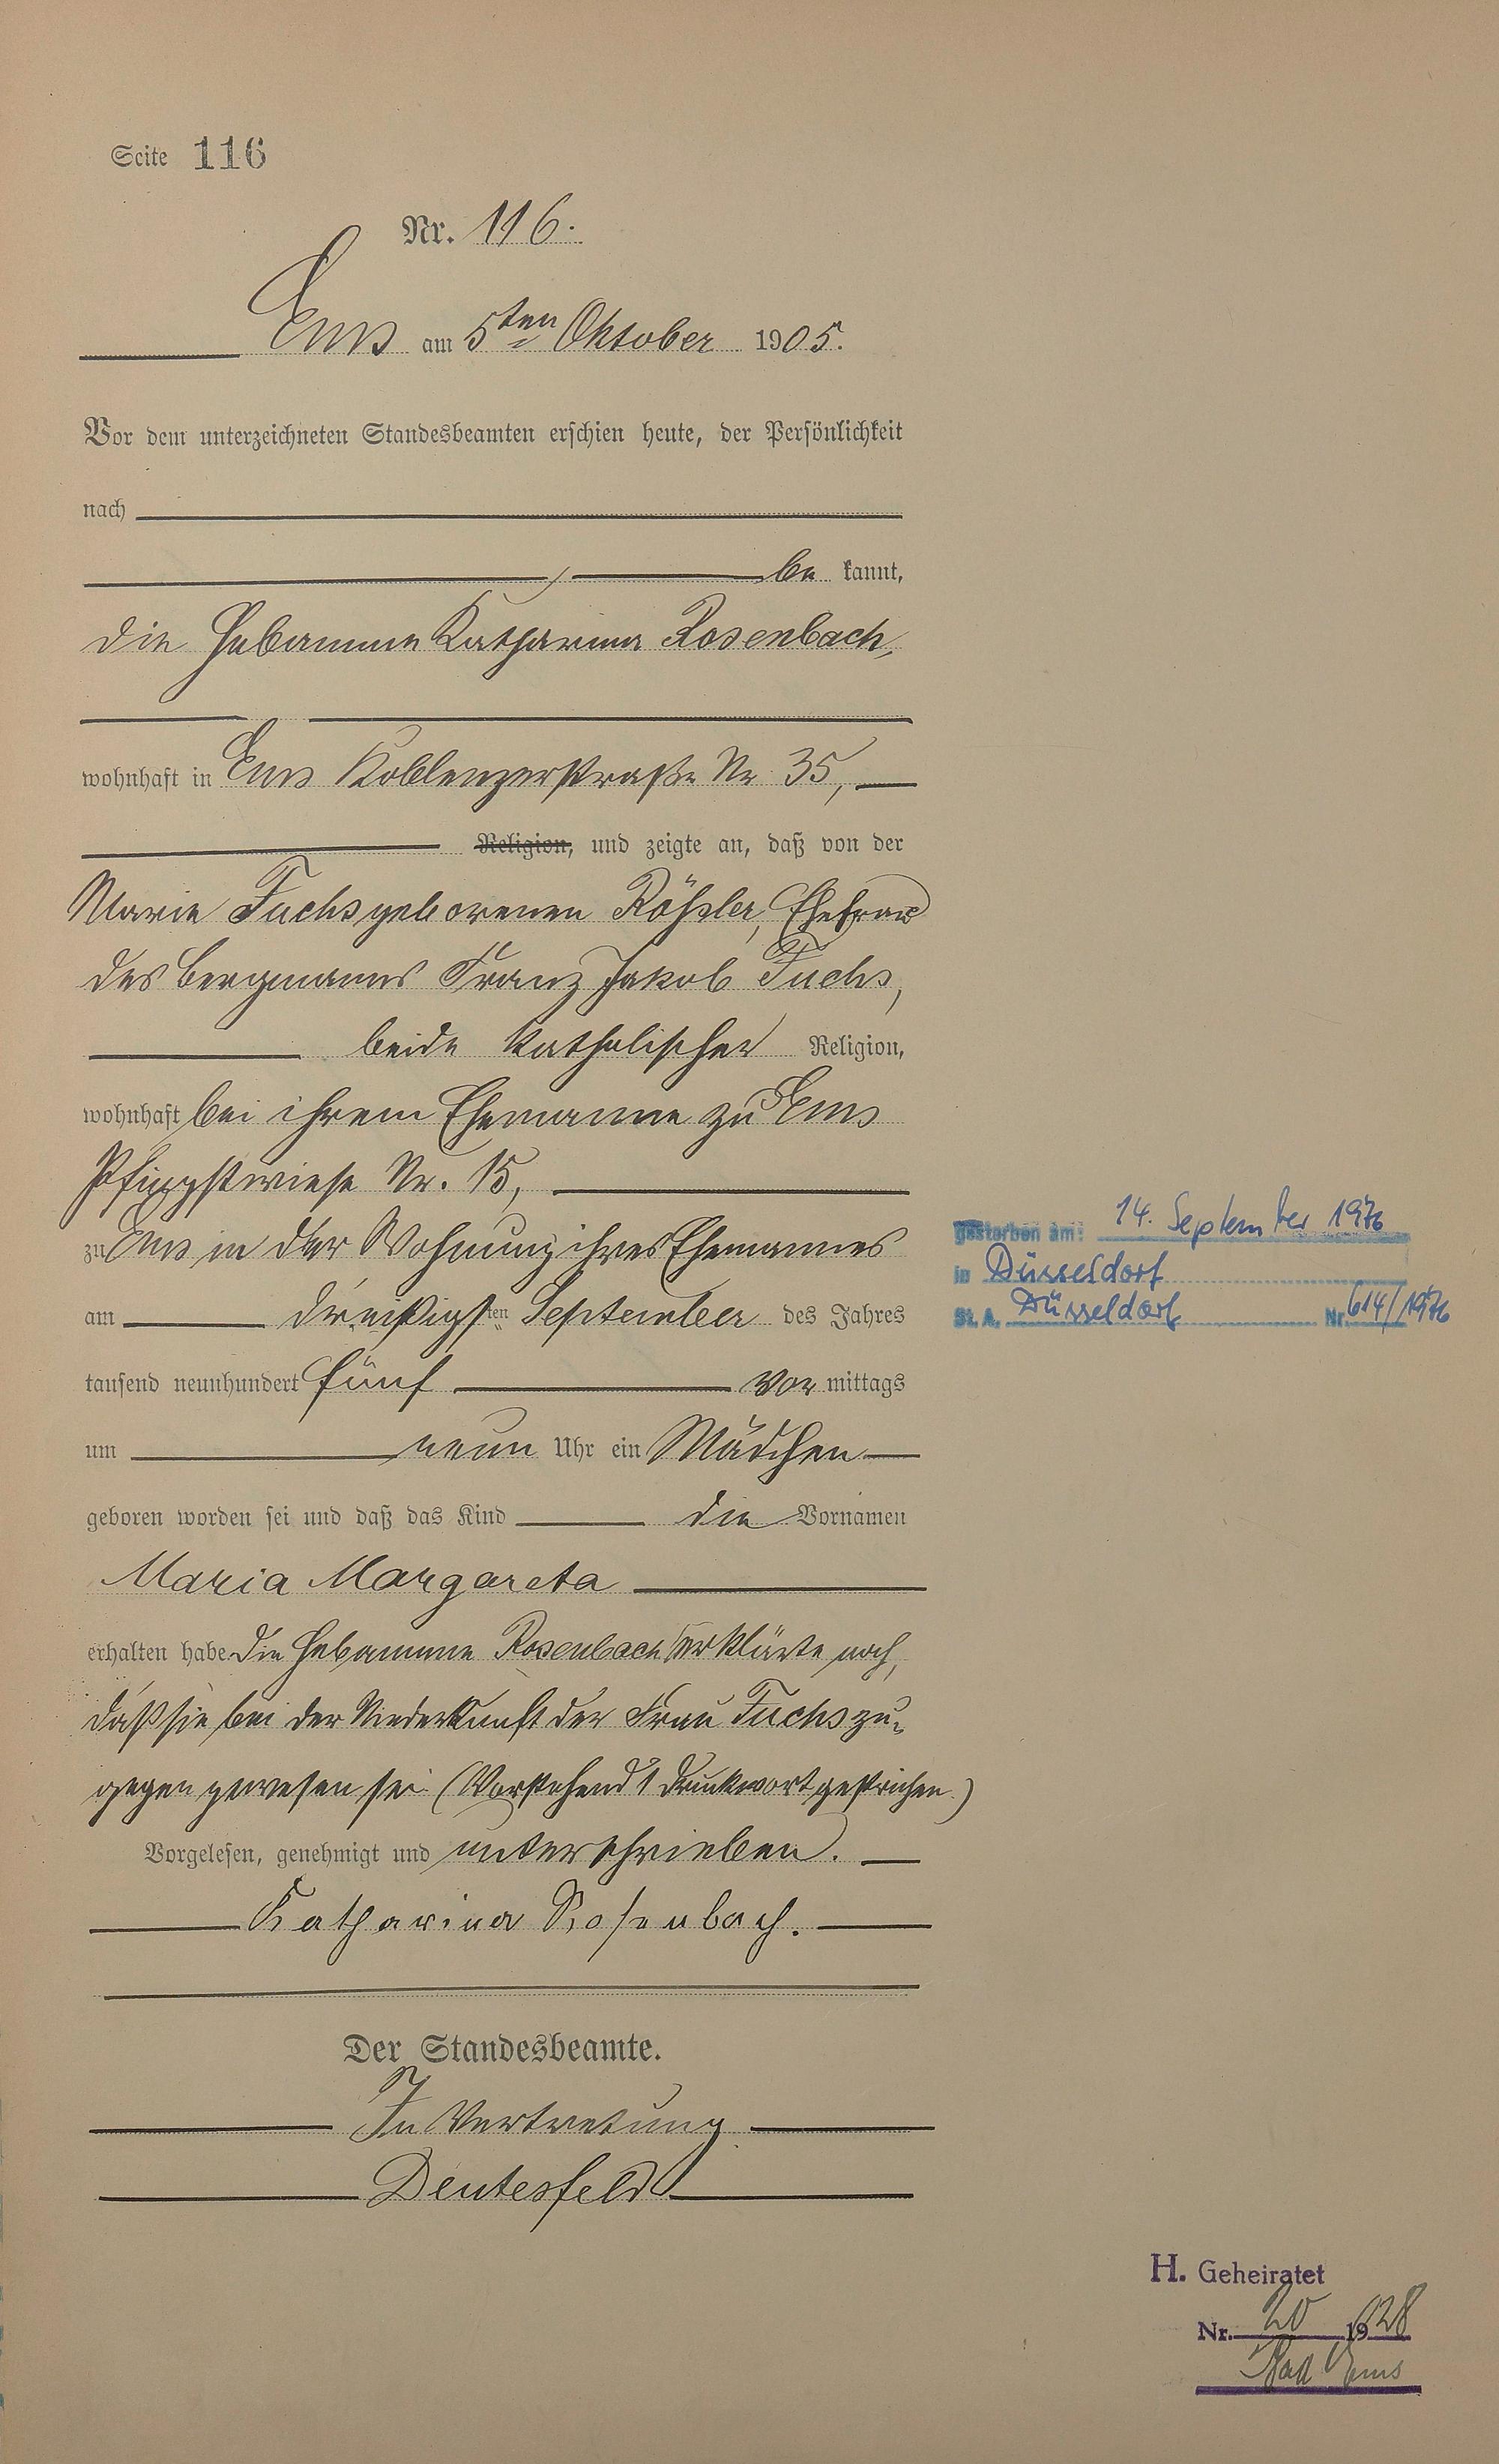 Seite 116
Nr. 116.
Ems am 5ten Oktober 1905.
Vor dem unterzeichneten Standesbeamten erschien heute, der Persönlichkeit
nach
be kannt,
die Hebamme Katharina Rosenbach,
wohnhaft in Ems Koblenzerstraße Nr. 35,
Religion, und zeigte an, daß von der
Marie Fuchs geborenen Rößler, Ehefrau
des Bergmanns Franz Jakob Fuchs,
beide katholischer Religion,
wohnhaft bei ihrem Ehemanne zu Ems
Pfingstwiese Nr. 15,
zu Ems in der Wohnung ihres Ehemannes
am dreißigsten September des Jahres
tausend neunhundert fünf vor mittags
um neun Uhr ein Mädchen
geboren worden sei und daß das Kind die Vornamen
Maria Margareta
erhalten habe. Die Hebamme Rosenbach erklärte noch,
daß sie bei der Niederkunft der Frau Fuchs zu-
gegen gewesen sei. (Vorstehend 1 Druckwort gestrichen.)
Vorgelesen, genehmigt und unterschrieben.
Katharina Rosenbach.
Der Standesbeamte.
In Vertretung
Deutesfeld
gestorben am: 14. September 1976
in Düsseldorf
St. A. Düsseldorf Nr. 614/1976
H. Geheiratet
Nr. 20 1928
Bad Ems